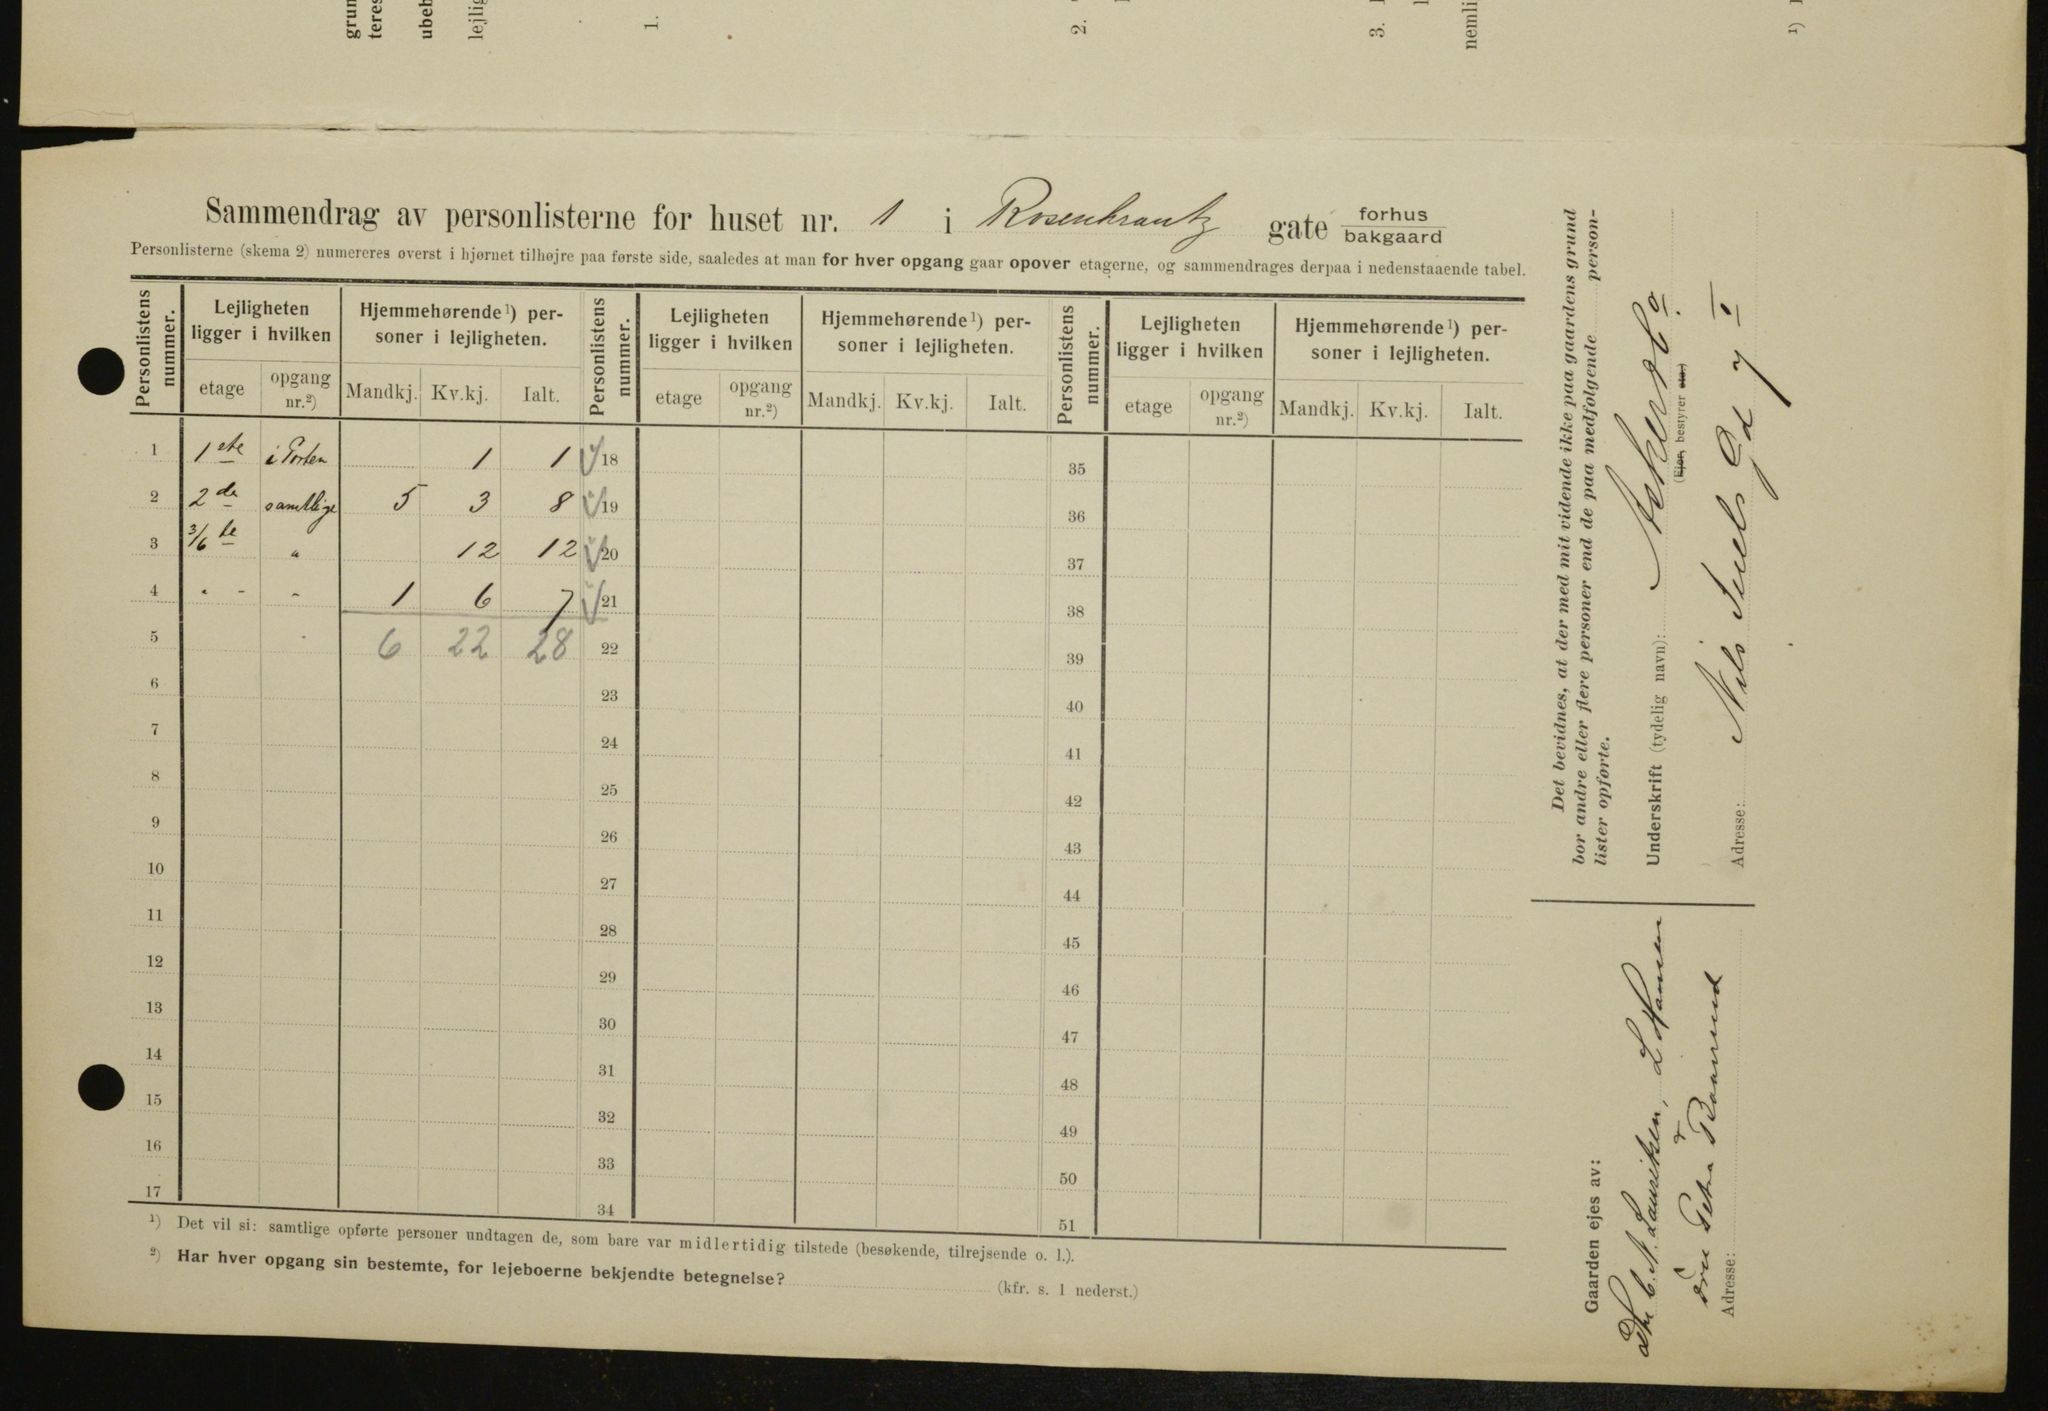 grun
teres
ubeb
lejlig
1.
2.
3.
nemli
¹)
Sammendrag av personlisterne for huset nr. 1 i Rosenkrantz gate forhus
bakgaard
Personlisterne (skema 2) numereres øverst i hjørnet tilhøjre paa første side, saaledes at man for hver opgang gaar opover etagerne, og sammendrages derpaa i nedenstaaende tabel.
Personlistens nummer. Lejligheten ligger i hvilken Hjemmehørende¹) personer i lejligheten. Personlistens nummer. Lejligheten ligger i hvilken Hjemmehørende¹) personer i lejligheten. Personlistens nummer. Lejligheten ligger i hvilken Hjemmehørende¹) personer i lejligheten.
etage opgang nr.²) Mandkj. Kv.kj. Ialt. etage opgang nr.²) Mandkj. Kv.kj. Ialt. etage opgang nr.²) Mandkj. Kv.kj. Ialt.
1 1ste i Porten 1 1 18 35
2 2de samtlige 5 3 8 19 36
3 3/6te " 12 12 20 37
4 " - " 1 6 7 21 38
5 6 22 28 22 39
6 23 40
7 24 41
8 25 42
9 26 43
10 27 44
11 28 45
12 29 46
13 30 47
14 31 48
15 32 49
16 33 50
17 34 51
¹) Det vil si: samtlige opførte personer undtagen de, som bare var midlertidig tilstede (besøkende, tilrejsende o. l.).
²) Har hver opgang sin bestemte, for lejeboerne bekjendte betegnelse? (kfr. s. 1 nederst.)
Det bevidnes, at der med mit vidende ikke paa gaardens grund
bor andre eller flere personer end de paa medfølgende person-
lister opførte.
Underskrift (tydelig navn):
(Ejer, bestyrer etc.)
Adresse: Nils Juels Gd 7 I
Gaarden ejes av:
C. N. Lauritsen, L Hansen
& Petra Raanerud
Adresse: